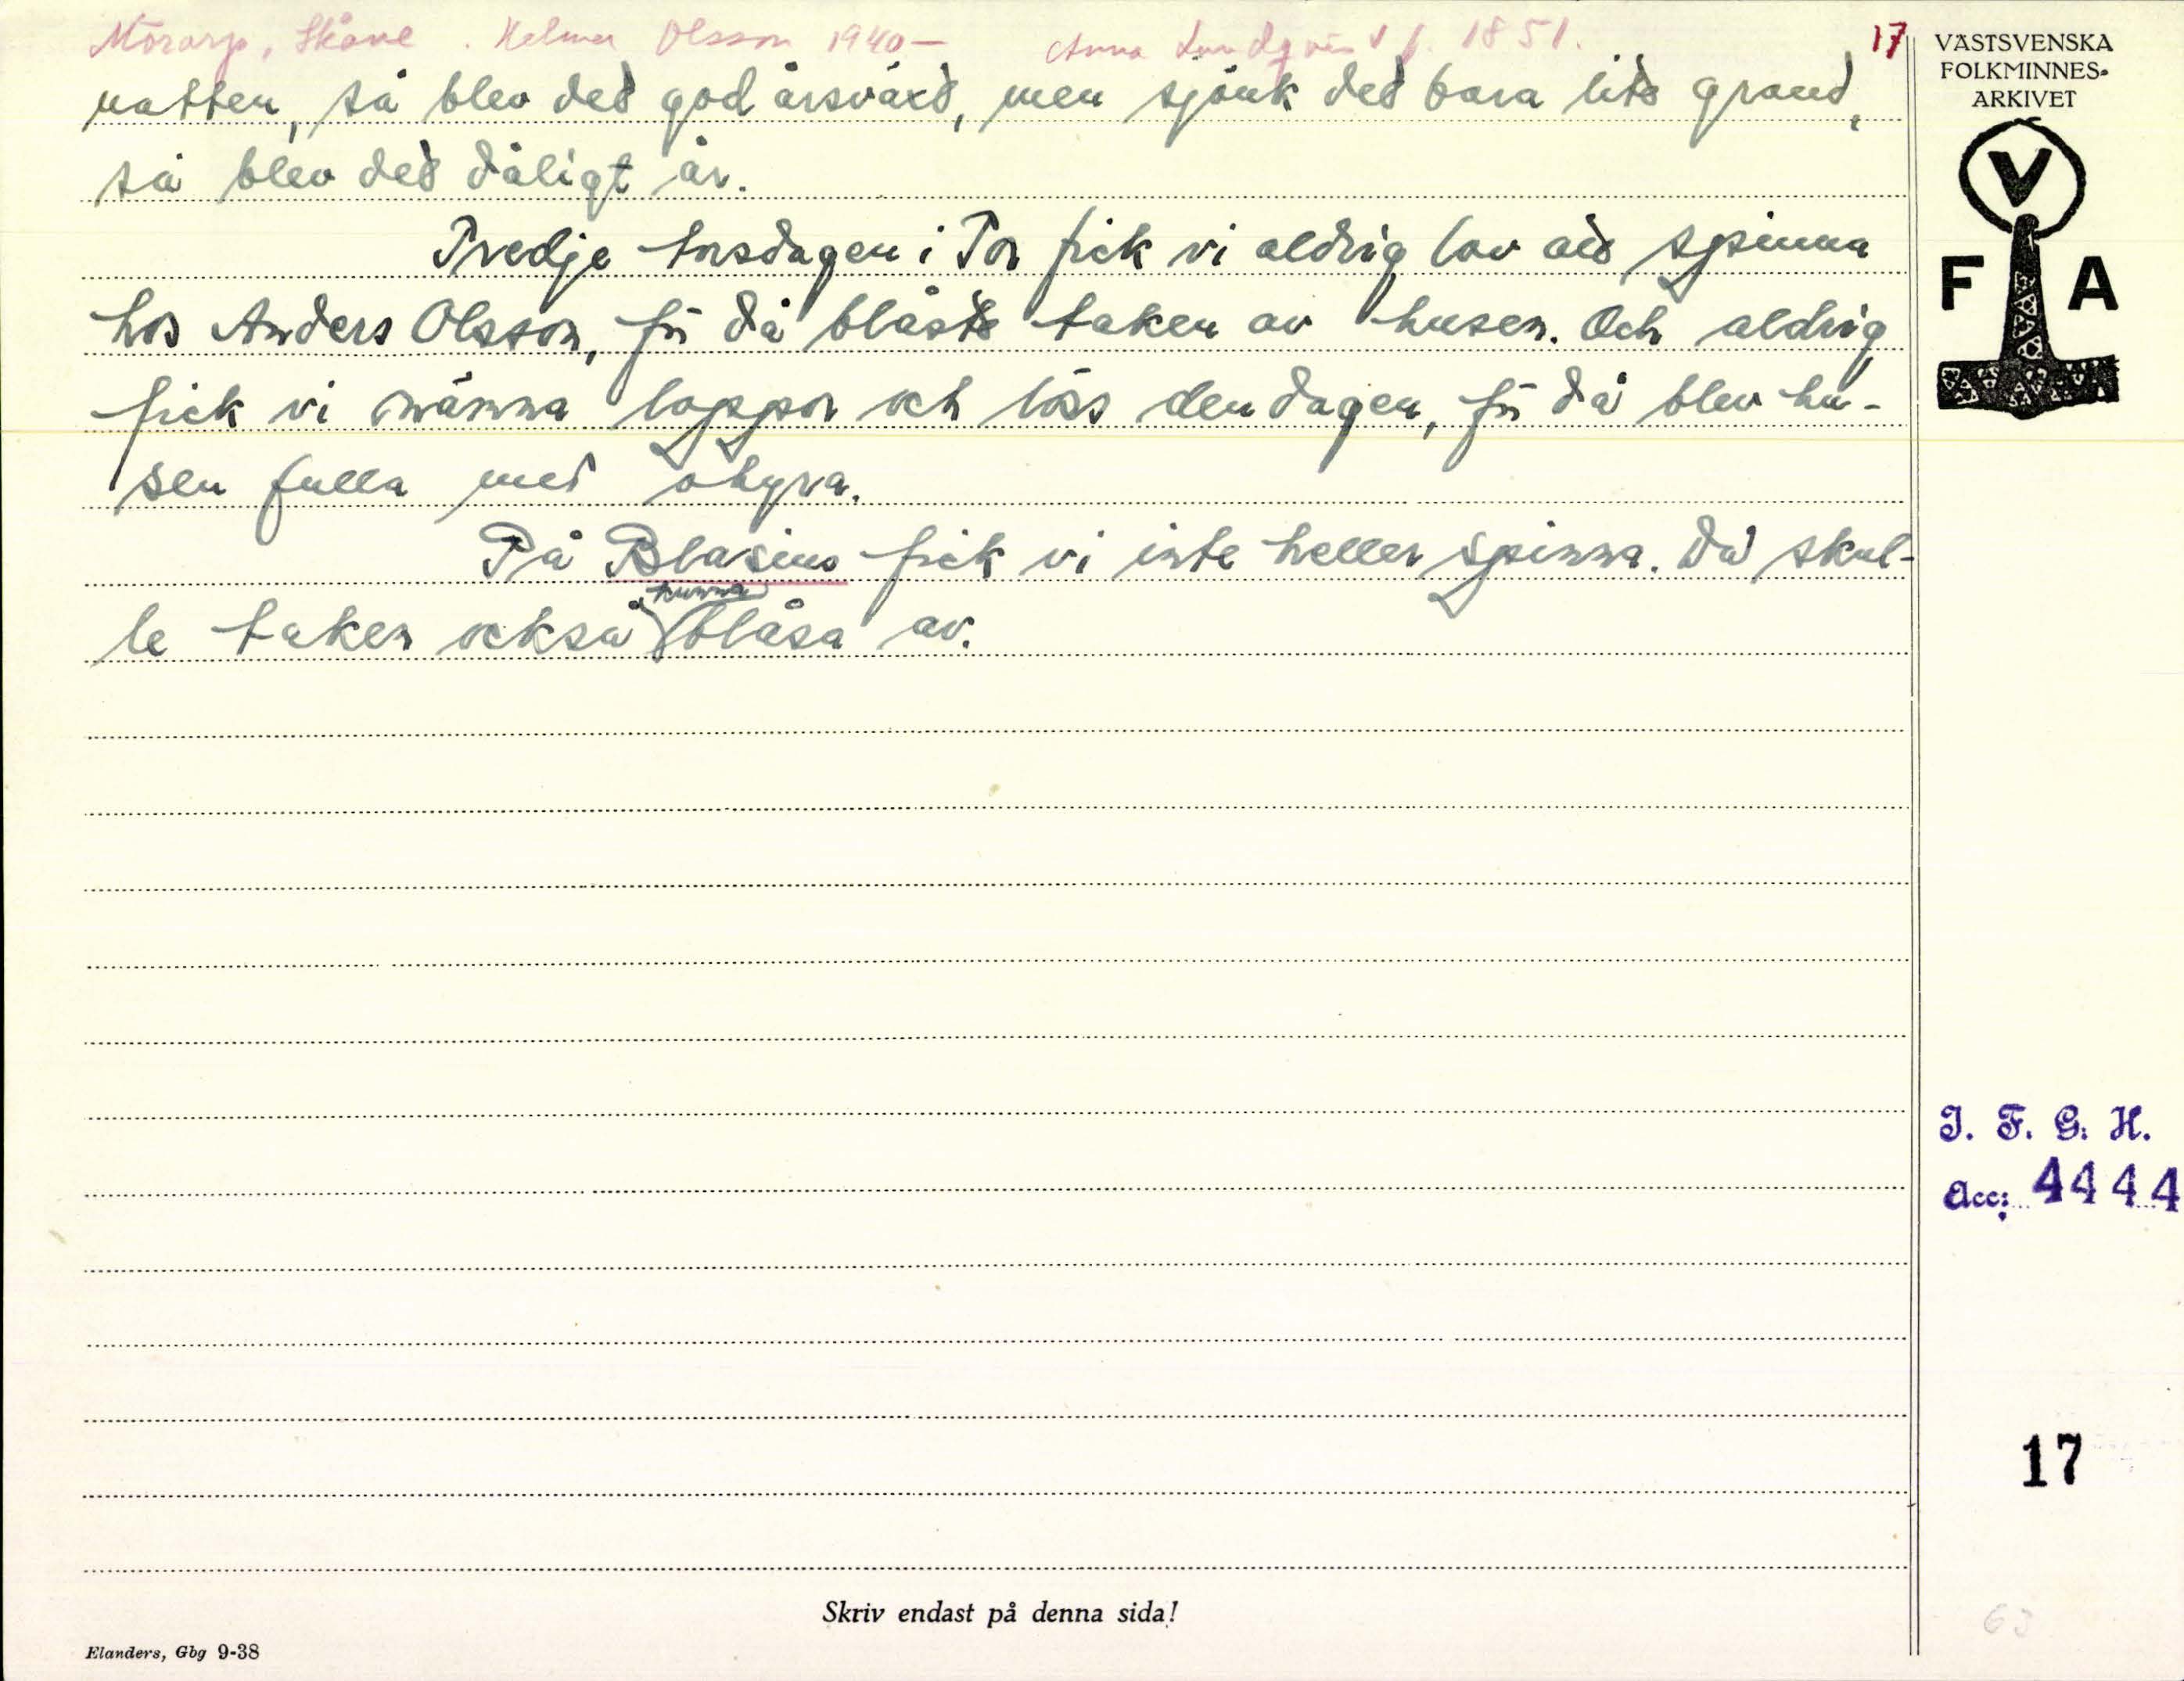 Mörarp, Skåne. Helmer Olsson 1940— Anna Lundqvist f. 1851. 17
natten, så blev det god årsväxt, men sjönk det bara lite grand,
så blev det dåligt år.
Tredje torsdagen i Tor fick vi aldrig lov att spinna
hos Anders Olsson, för då blåste taken av husen. Och aldrig
fick vi nämna loppor och löss den dagen, för då blev hu-
sen fulla med ohyra.
På Blasius fick vi inte heller spinna. Då skul-
kunna
le taken också blåsa av.
VÄSTSVENSKA
FOLKMINNES-
ARKIVET
V
F A
I. F. G. H.
Acc: 4444
17
63
Skriv endast på denna sida!
Elanders, Gbg 9-38